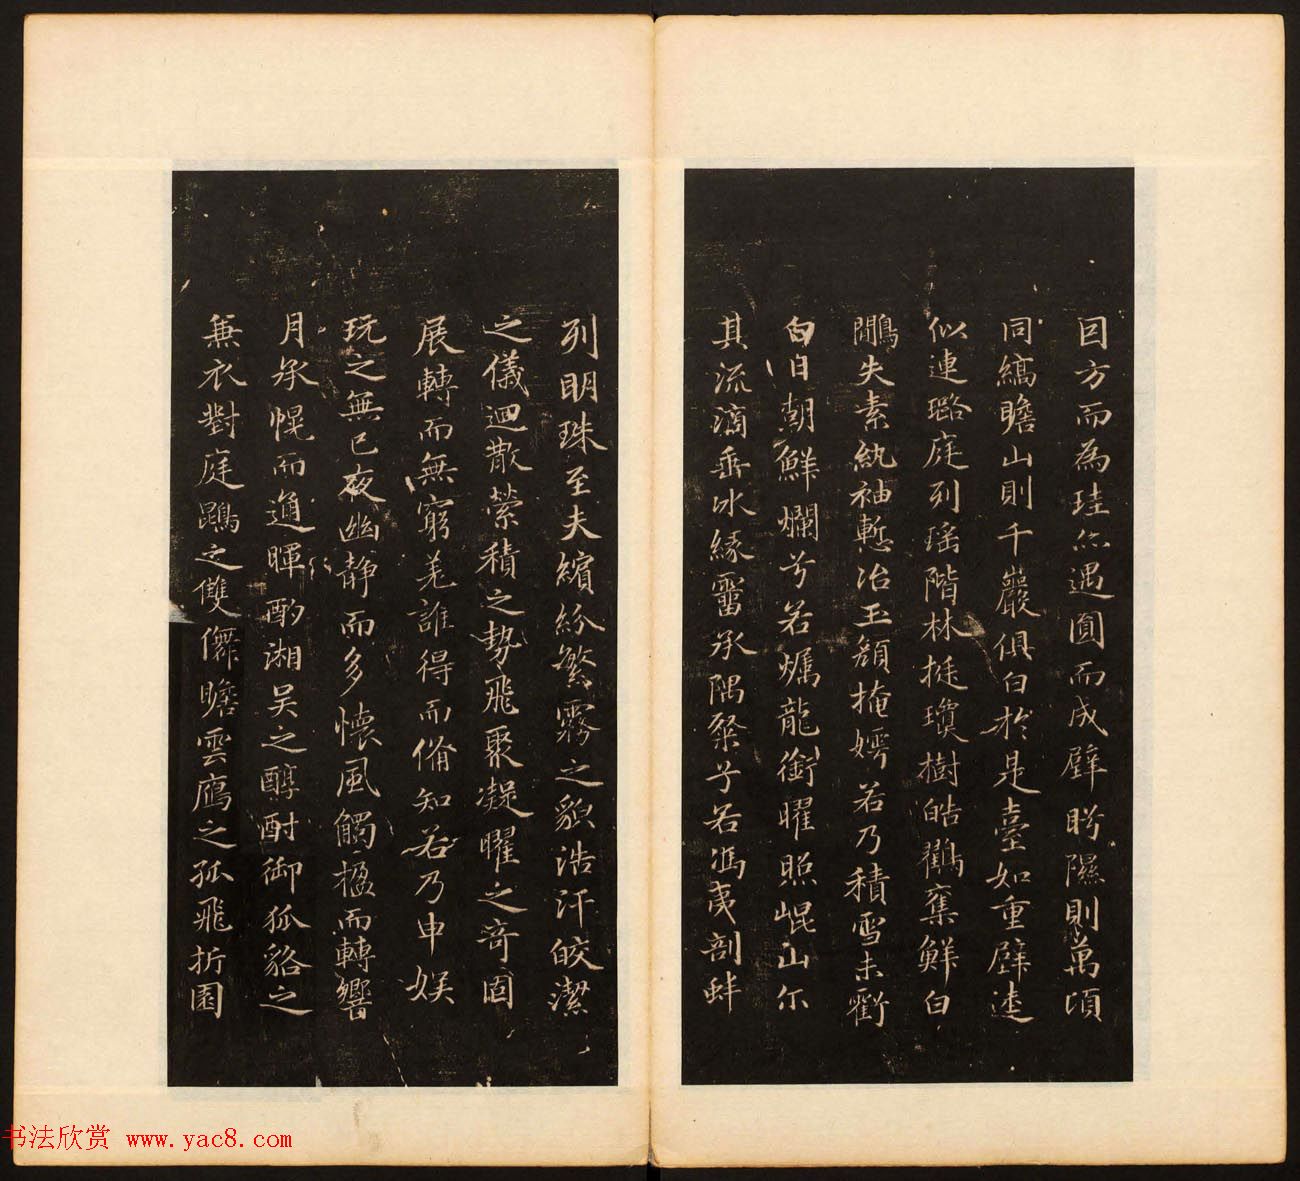 因方而為珪亦遇圓而成璧眄隰則萬頃
同縞瞻山則千巖俱白於是臺如重璧逵
似連璐庭列瑤階林挺瓊樹皓鶴奪鮮白
鷳失素紈袖慙冶玉顏掩嫮若乃積雪未虧
白日朝鮮爛兮若爥龍銜曜照崐山尔
其流滴垂冰緣霤承隅粲兮若馮夷剖蚌
列明珠至夫繽紛繁霧之貌浩汗皎潔
之儀迴散縈積之勢飛聚凝曜之奇固
展轉而無窮羌誰得而備知若乃申娛
玩之無已夜幽靜而多懷風觸楹而轉響
月承幌而通暉酌湘吳之醇酎御狐貉之
兼衣對庭鵾之雙儛瞻雲鴈之孤飛折園
书法欣赏 www.yac8.com